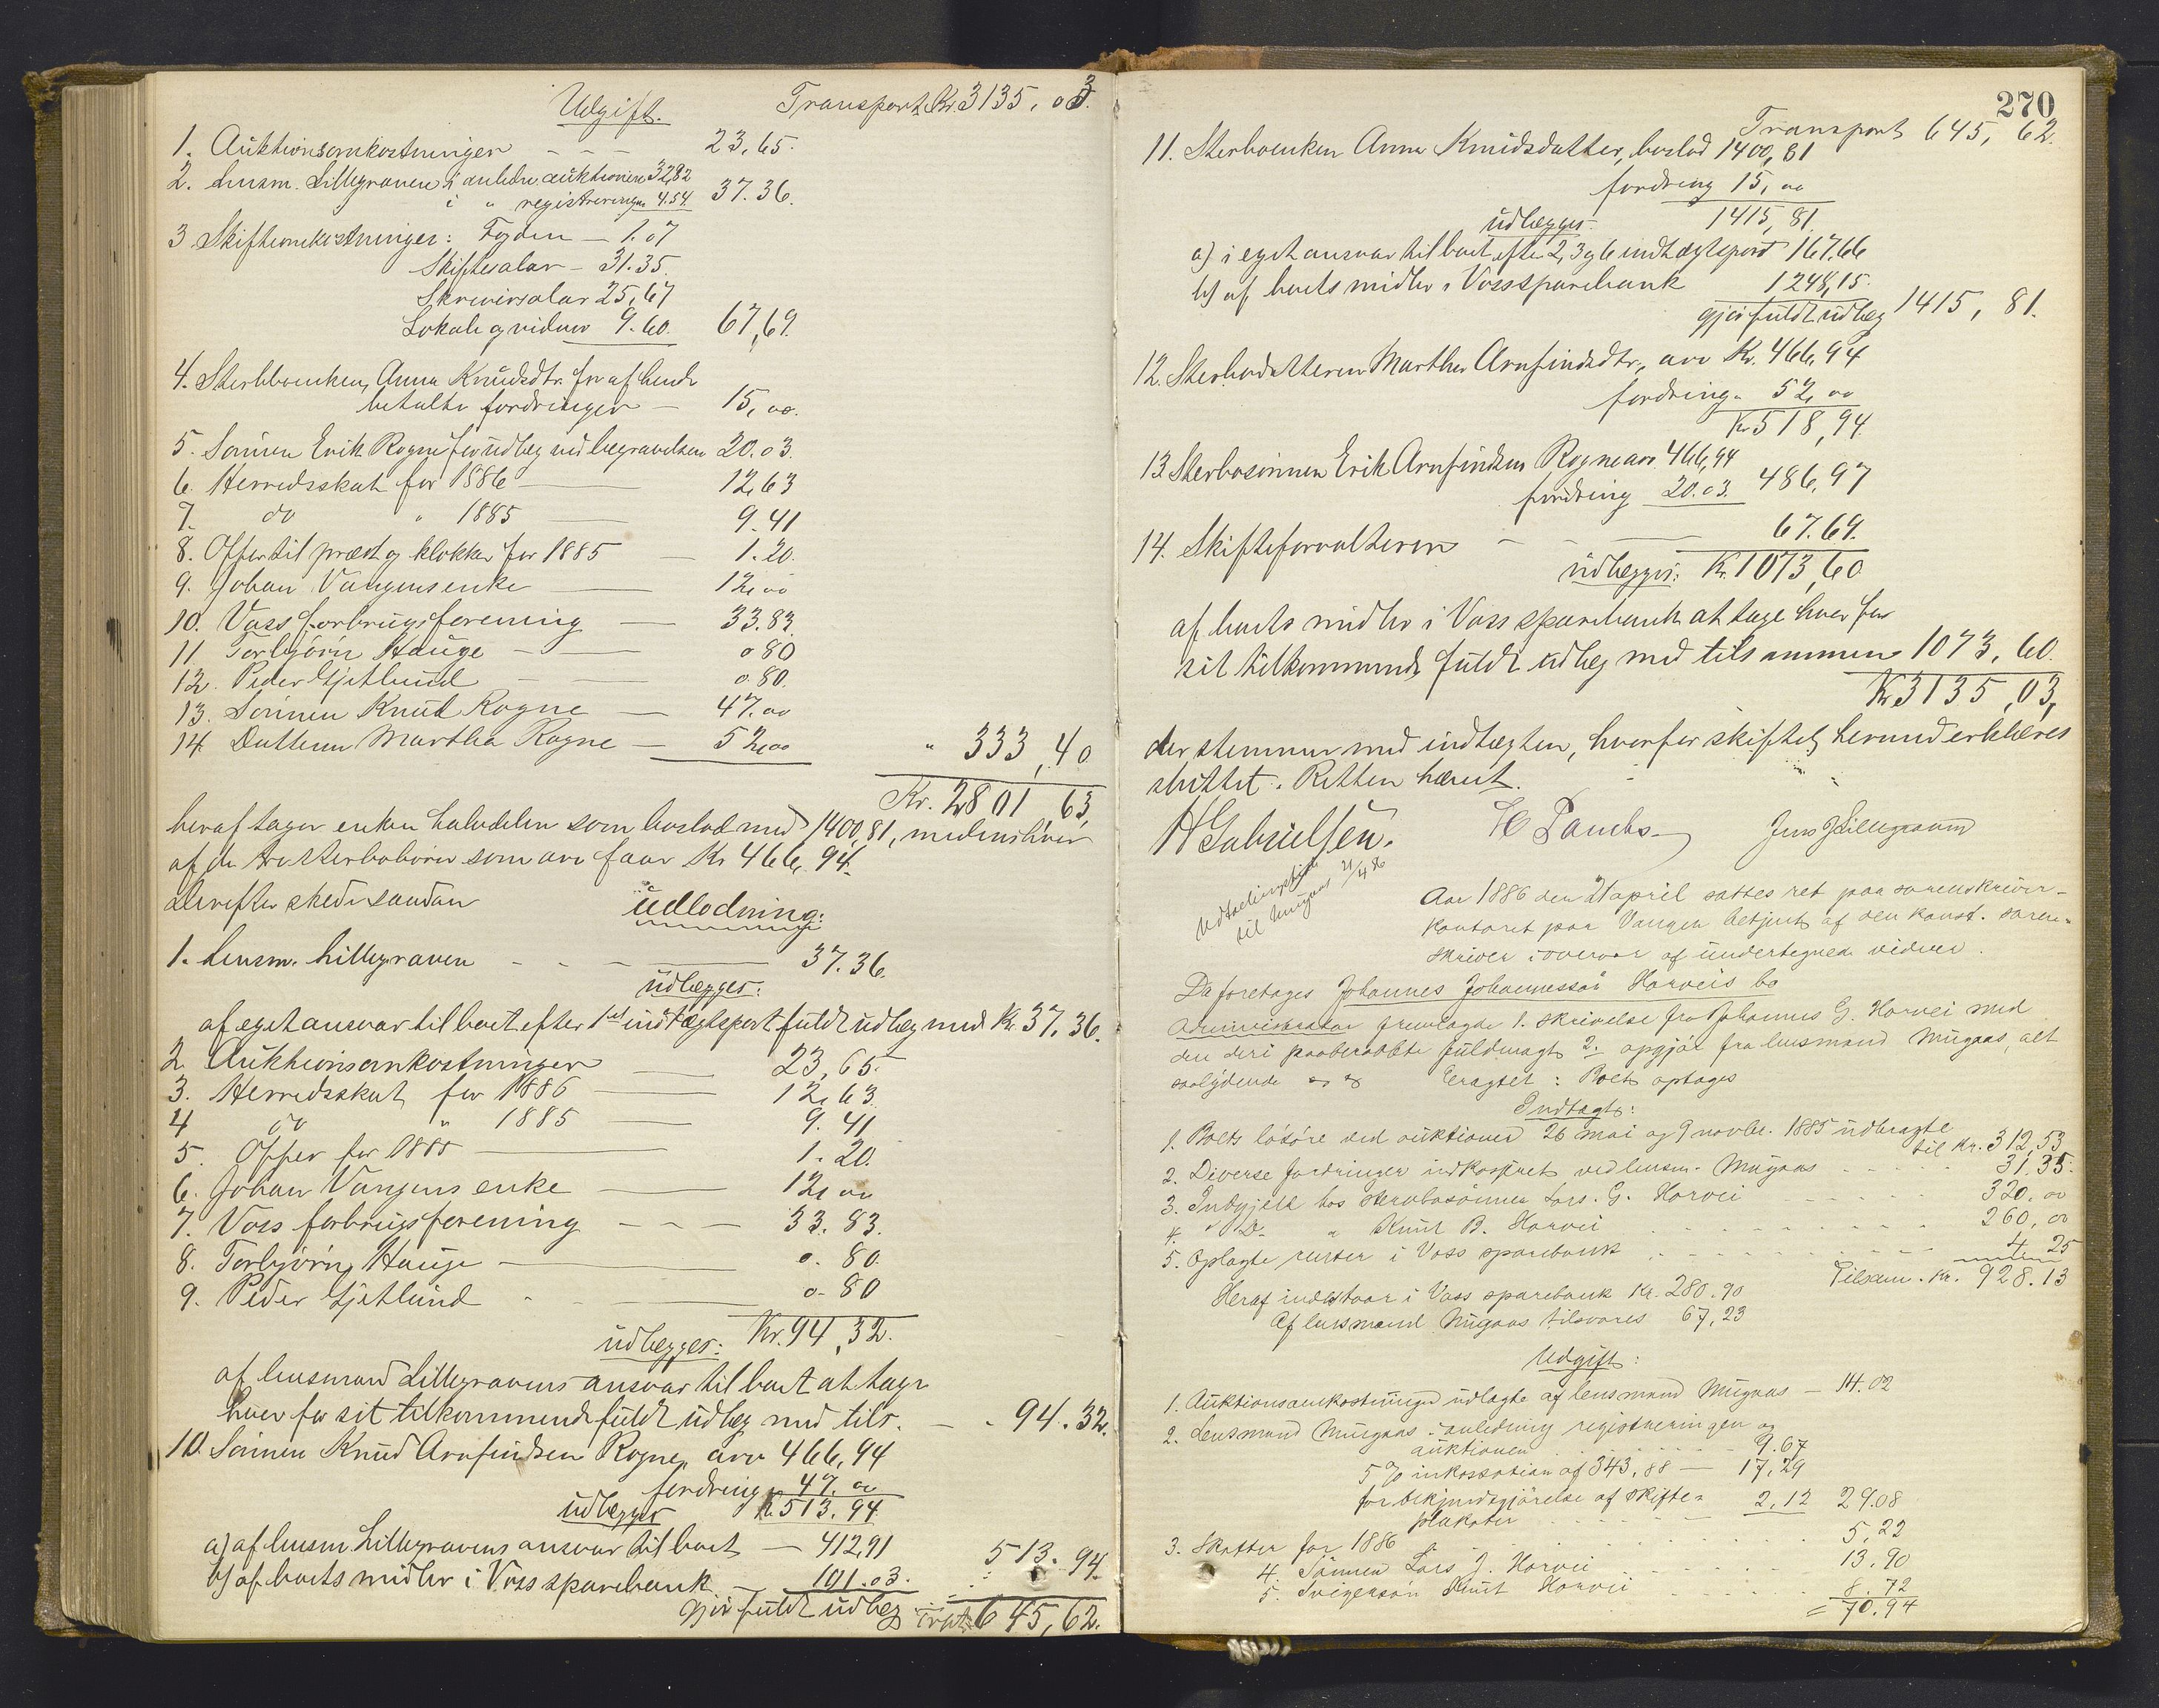 Udgift. Transport Kr. 3135,03.
1. Auktionsomkostninger - - - 23,65.
2. Lensm. Lillegraven i anledn. auktionen 32,82
i " registreringen 4.54. 37.36.
3 Skifteomkostninger: Fogden — 1.07
Skiftesalær - 31.35.
Skriversalær 25,67
Lokale og vidner 9.60. 67,69.
4. Sterbboenken, Anna Knudsdtr. for af hende
betalte fordringer — 15,00.
5. Sönnen Erik Rogne for udlæg ved begravelsen 20.03.
6. Herredsskat for 1886 — 12,63
7. do " 1885 — 9.41
8. Offer til præst og klokker for 1885 — 1.20.
9. Johan Vangens enke — 12,00
10. Voss forbrugsforening — 33.83.
11 Torbjörn Hauge - — 0 80
12. Peder Gjetlund - — 0.80.
13. Sönnen Knud Rogne — 47.00
14. Datteren Martha Rogne — 52,00 " 333,40
Kr. 2801,63,
heraf tager enken halvdelen som boslod med 1400,81, medens hver
af de tre sterbobörn som arv faar Kr 466,94.
Derefter skede saadan Udlodning:
1. Lensm. Lillegraven - - — 37.36.
udlægges:
af eget ansvar til boet efter 1ste indtægtspost fuldt udlæg med Kr. 37.36.
2. Auktionsomkostninger — 23,65.
3. Herredsskat for 1886 — 12,63.
4 do " 1885 — 9.41
5. Offer for 1885 — 1.20.
6. Johan Vangens enke — 12,00
7. Voss forbrugsforening - - — 33.83.
8. Torbjörn Hauge - — 0.80.
9. Peder Gjetlund - - — 0-80
udlægges: Kr. 94,32.
af lensmand Lillegravens ansvar til boet at tage
hver for sit tilkommende fuldt udlæg med tils. — . 94.32.
10. Sönnen Knud Arnfindsen Rogne, arv 466,94
fordring 47.00
udlægges Kr. 513.94
a) af lensm. Lillegravens ansvar til boet — 412,91
b) af boets midler i Voss sparebank. — 101.03. 513.94.
gjör fuldt udlæg Trpt. 645,62.
270
Transport 645,62.
11. Sterboenken Anna Knudsdatter, boslod 1400,81
fordring 15,00
udlægges: 1415,81.
a) i eget ansvar til boet efter 2, 3 og 6 indtægtspost 167,66
b) af boets midler i Voss sparebank 1248,15.
gjör fuldt udlæg 1415,81.
12. Sterbodatteren Martha Arnfindsdtr., arv Kr. 466,94
fordring " 52,00
Kr 518,94
13. Sterbosönnen Erik Arnfindsen Rogne arv 466,94
fordring 20.03. 486,97
14. Skifteforvalteren - - — 67.69.
udlægges: Kr. 1073,60
af boets midler i Voss sparebank at tage hver for
sit tilkommende fuldt udlæg med tilsammen 1073,60.
Kr. 3135,03,
der stemmer med indtægten, hvorfor skiftet herved erklæres
sluttet. Retten hævet.
H Gabrielsen. Jens J Lillegraven
til Mugaas 21/4 86
Aar 1886 den 21 april sattes ret paa sorenskriver-
kontoret paa Vangen betjent af den konst. soren-
skriver i overvær af undertegnede vidner.
Da foretages Johannes Johannessøn Horveis bo
Administrator fremlagde 1. skrivelse fra Johannes G. Horvei med
den deri paaberaabte fuldmagt 2. opgjør fra lensmand Mugaas, alt
saalydende Eragtet: Boets optages
Indtægt:
1. Boets løsøre ved auktioner 26 mai og 9 novbr. 1885 udbragte
til Kr. 312,53
2. Diverse fordringer indkasseret ved lensm. Mugaas - - - 31,35.
3. Indgjæld hos sterbosønnen Lars. G. Horvei - - - 320,00
4. " D- " Knut B. Horvei - - - 260,00
5. Oplagte renter i Voss sparebank - - - 4,25
Tilsam. Kr. 928.13
Heraf indestaar i Voss sparebank Kr. 280.90
Af lensmand Mugaas tilsvares 67,23
Udgift:
1. Auktionsomkostninger udlagte af lensmand Mugaas — 14.02
2. Lensmand Mugaas i anledning registreringen og
auktionen - - - 9.67
5 % inkassation af 343,88 — 17,29
for bekjendtgjørelse af skifte-
plakater - - - 2,12 29.08
3. Skatter for 1886 - - - 5,22
4. Sønnen Lars J. Horvei - - - 13.90
5. Svigersøn Knut Horvei - - - 8.72
= 70.94